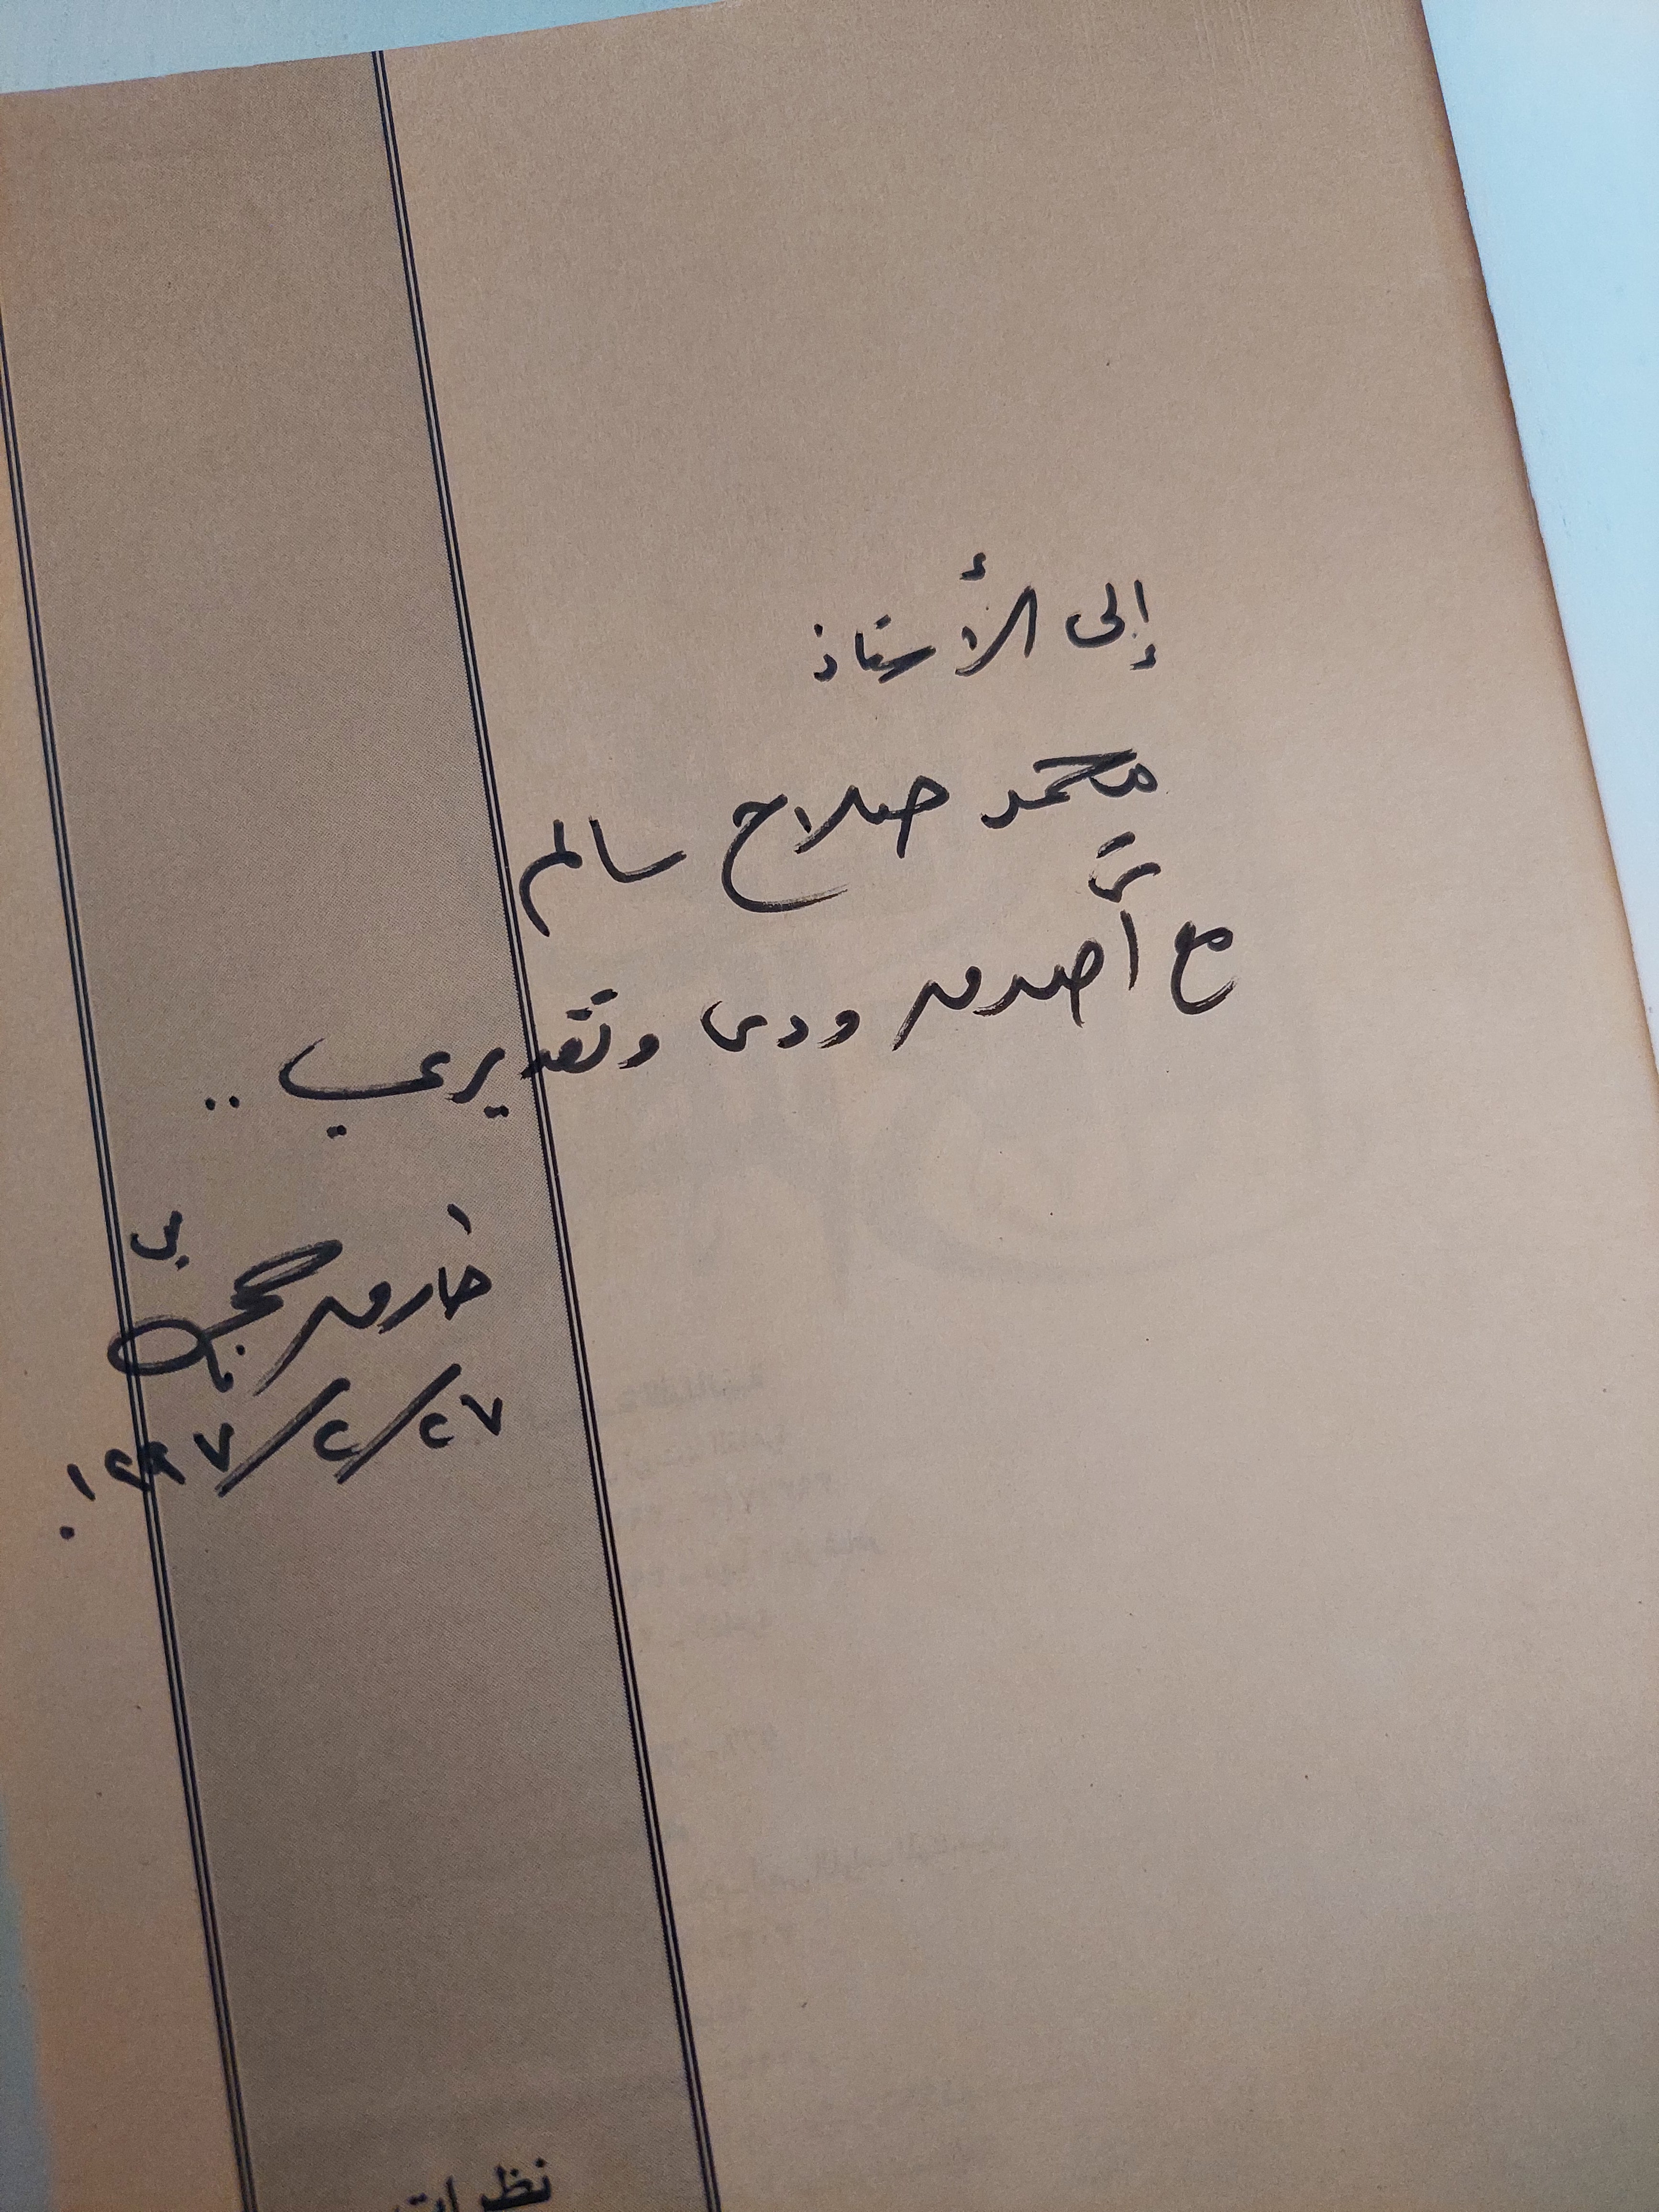 إلى الأستاذ
محمد صلاح سالم
مع أصدق ودى وتقديري ..
٢٧/٢/١٩٩٧
نظرات